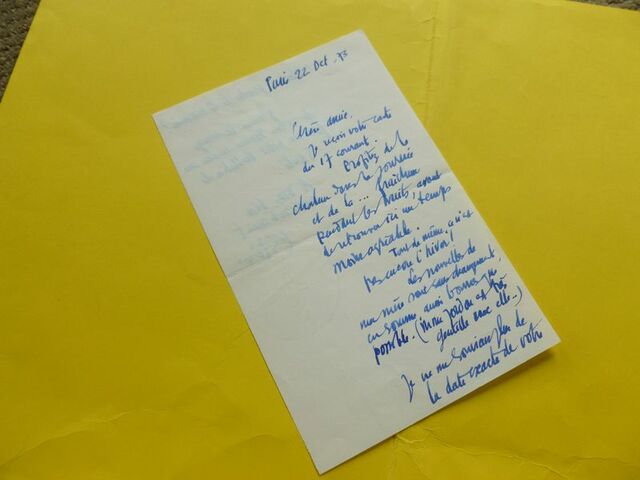 Paris 22 Oct. 73
Chère amie,
Je reçois votre carte
du 17 courant.
Profitez de la
chaleur dans la journée
et de la ... fraîcheur
pendant les nuits, avant
de retrouver ici un temps
moins agréable.
Tout de même, ce n'est
pas encore l'hiver!
Les nouvelles de
ma mère sont sans changement
en somme aussi bonnes que
possible. (Mme est très
gentille avec elle..)
Je ne me souviens plus de
la date exacte de votre